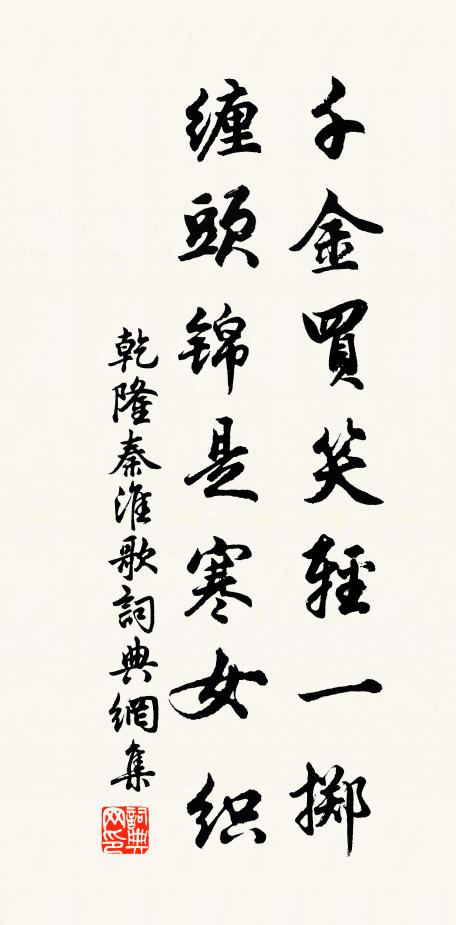 千金買笑輕一擲
纏頭錦是寒女織
乾隆秦淮歌詞典網集
詞典网印